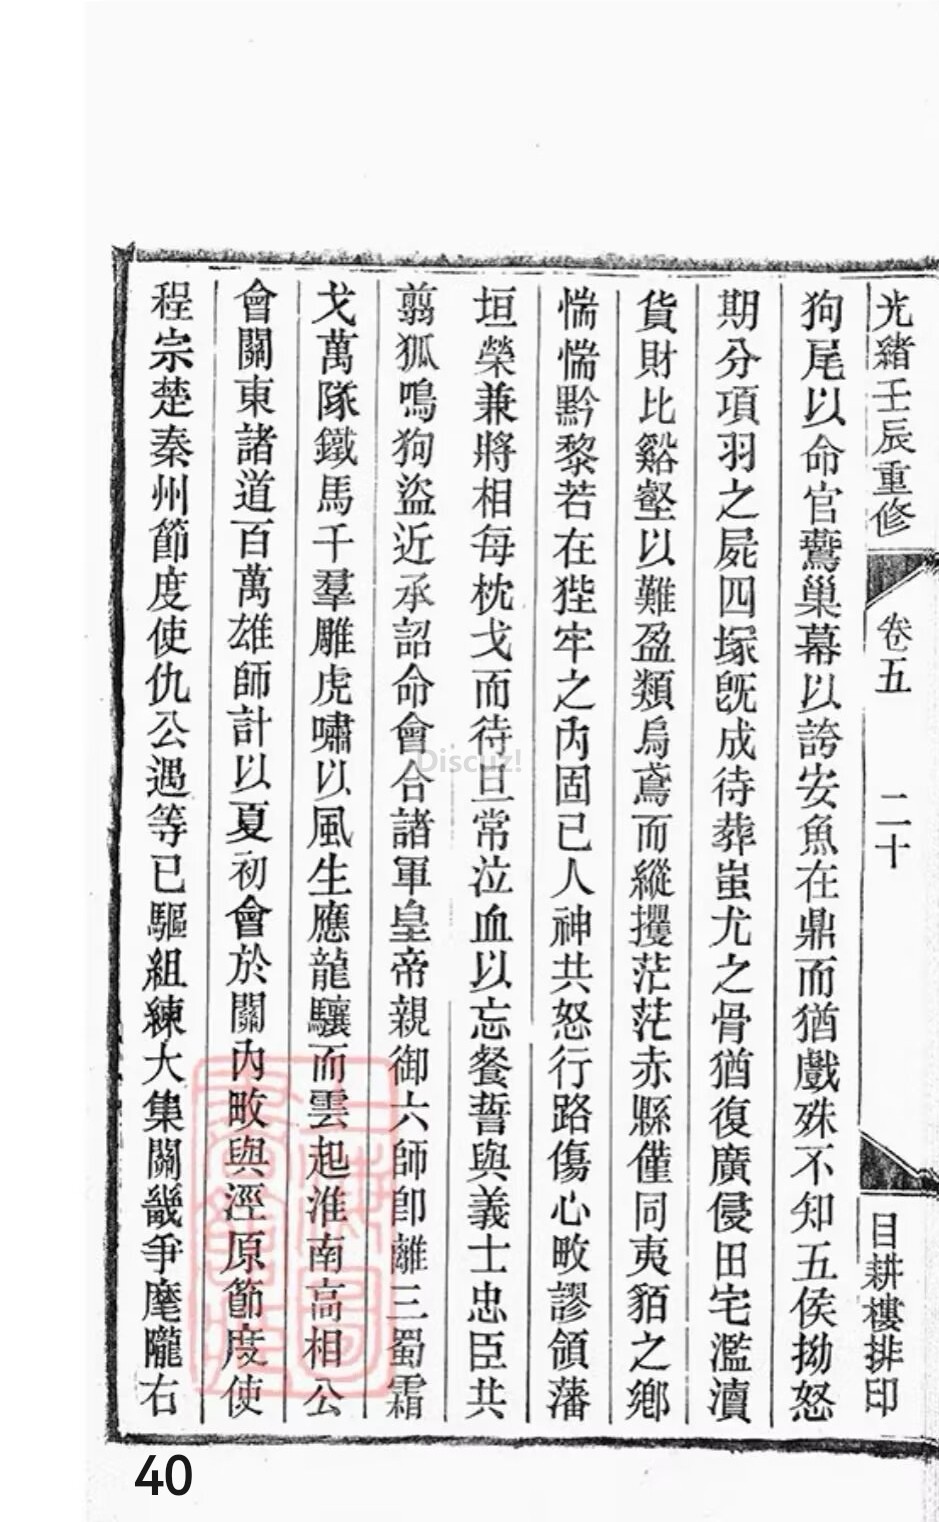 光緒壬辰重修 卷五 二十 目耕樓排印
狗尾以命官鷰巢幕以誇安魚在鼎而猶戲殊不知五侯拗怒
期分項羽之屍四塚旣成待葬蚩尤之骨猶復廣侵田宅濫瀆
貨財比谿壑以難盈類烏鳶而縱攫茫茫赤縣僅同夷貊之鄉
惴惴黔黎若在狴牢之內固已人神共怒行路傷心畋謬領藩
垣榮兼將相每枕戈而待旦常泣血以忘餐誓與義士忠臣共
翦狐鳴狗盜近承詔命會合諸軍皇帝親御六師卽離三蜀霜
戈萬隊鐵馬千羣雕虎嘯以風生應龍驤而雲起淮南高相公
會關東諸道百萬雄師計以夏初會於關內畋與涇原節度使
程宗楚秦州節度使仇公遇等已驅組練大集關畿爭麾隴右
Discuz!
40